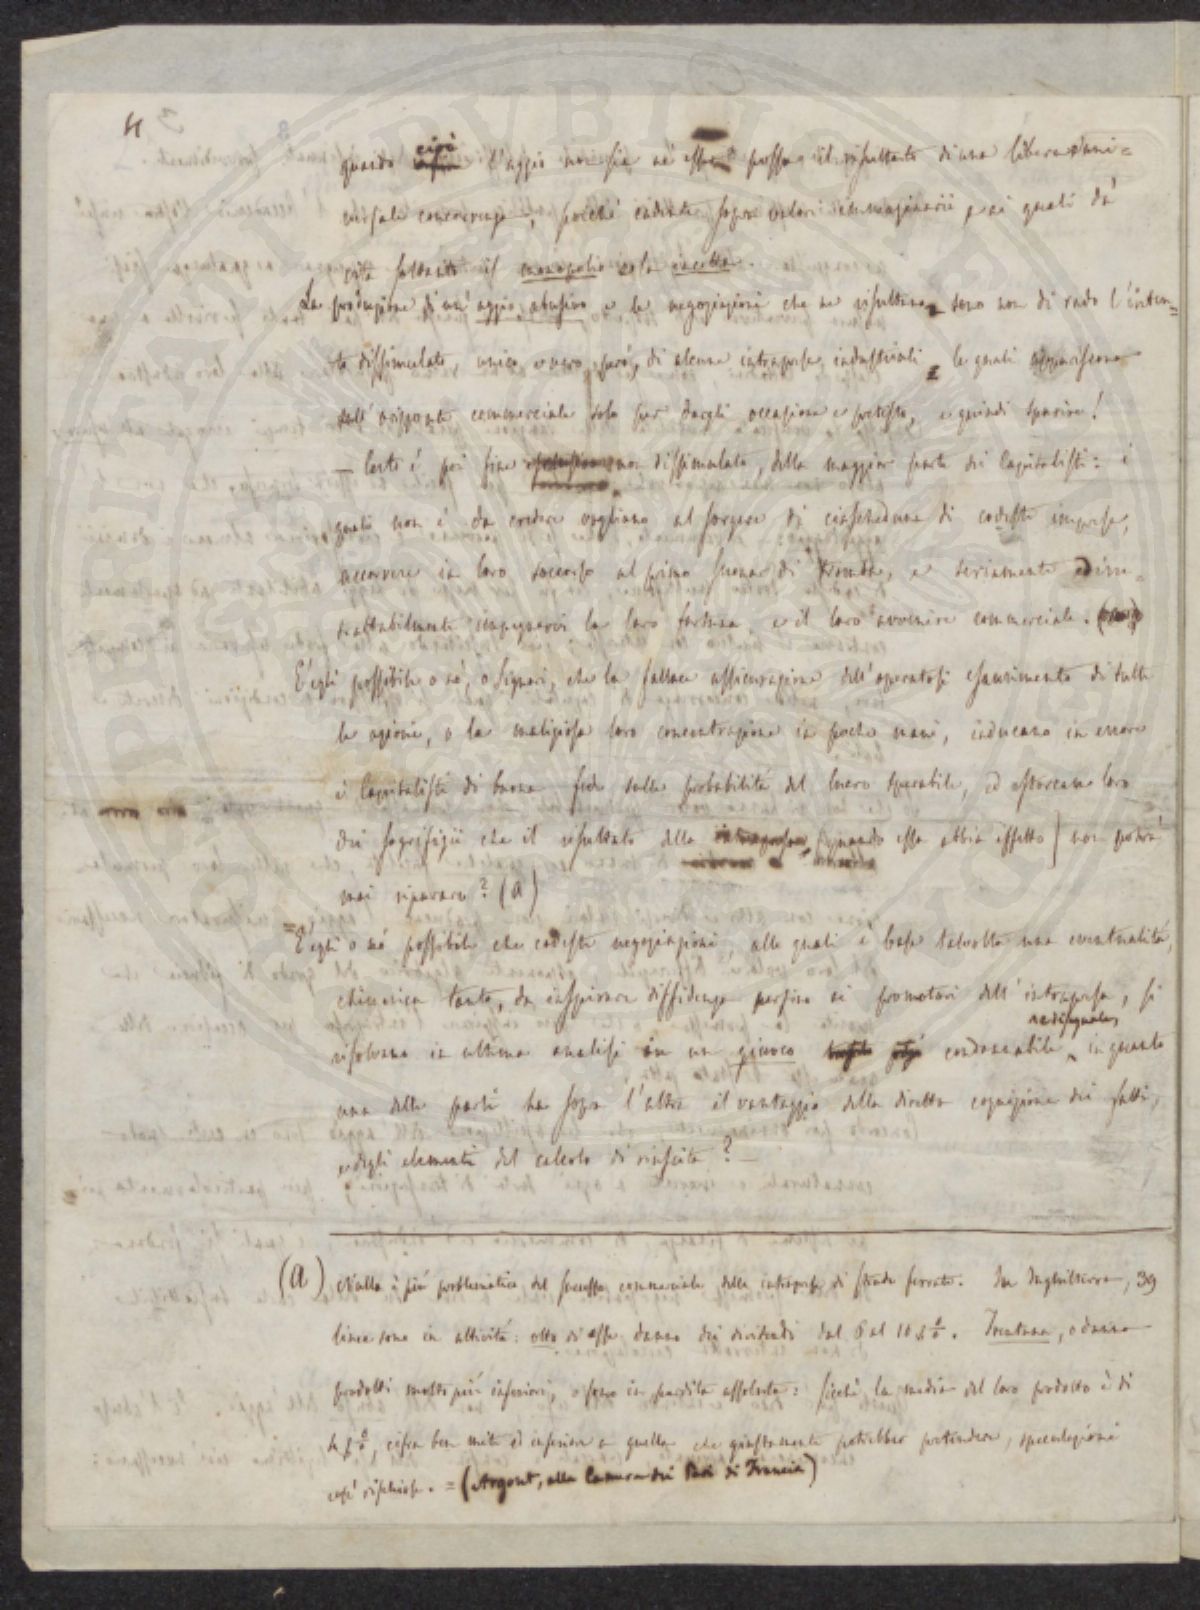 4
quando cioè l'aggio non sia nè esser possa il risultante di una libera uni=
versale concorrenza, poichè cadente sopra valori immaginarii, ai quali dà
vita soltanto il monopolio e la incetta.
La produzione di un' aggio abusivo e le negoziazioni che ne risultano, sono non di rado l'inten=
to dissimulato, unico e vero però, di alcune intraprese industriali, le quali appariscono
sull' orizzonte commerciale solo per dargli occasione e pretesto, e quindi sparire!
— Certo è poi fine non dissimulato, della maggior parte dei Capitalisti: i
quali non è da credere vogliano al sorgere di ciascheduna di codeste imprese,
accorrere in loro soccorso al primo suono di tromba, e seriamente ed irre=
trattabilmente impegnarvi la loro fortuna, e il loro avvenire commerciale.
È egli possibile o nò, o Signori, che la fallace assicurazione dell' operatosi esaurimento di tutte
le azioni, o la maliziosa loro concentrazione in poche mani, inducano in errore
i Capitalisti di buona fede sulle probabilità del lucro sperabile, ed estorcano loro
dei sagrifizii che il resultato della intrapresa (quando essa abbia effetto) non potrà
mai riparare? (a)
= È egli o nò possibile che codeste negoziazioni, alle quali è base talvolta una eventualità,
chimerica tanto, da inspirare diffidenza perfino ai promotori dell' intrapresa, si
risolvano in ultima analisi in un giuoco condannabile, in quanto
una delle parti ha sopra l'altra il vantaggio della diretta cognizione dei fatti,
e degli elementi del calcolo di riuscita? —
(a) Nulla è più problematico del successo commerciale delle intraprese di strade ferrate. In Inghilterra, 39
linee sono in attività: otto di esse danno dei dividendi dal 6 al 10 p%. Trentuna, o danno
prodotti molto più inferiori, o sono in perdita assoluta: sicchè la media del loro prodotto è di
4 p%, cifra ben mite ed inferiore a quella che giustamente potrebbero pretendere, speculazioni
così rischiose. = (Argout, alla Camera dei Pari di Francia)